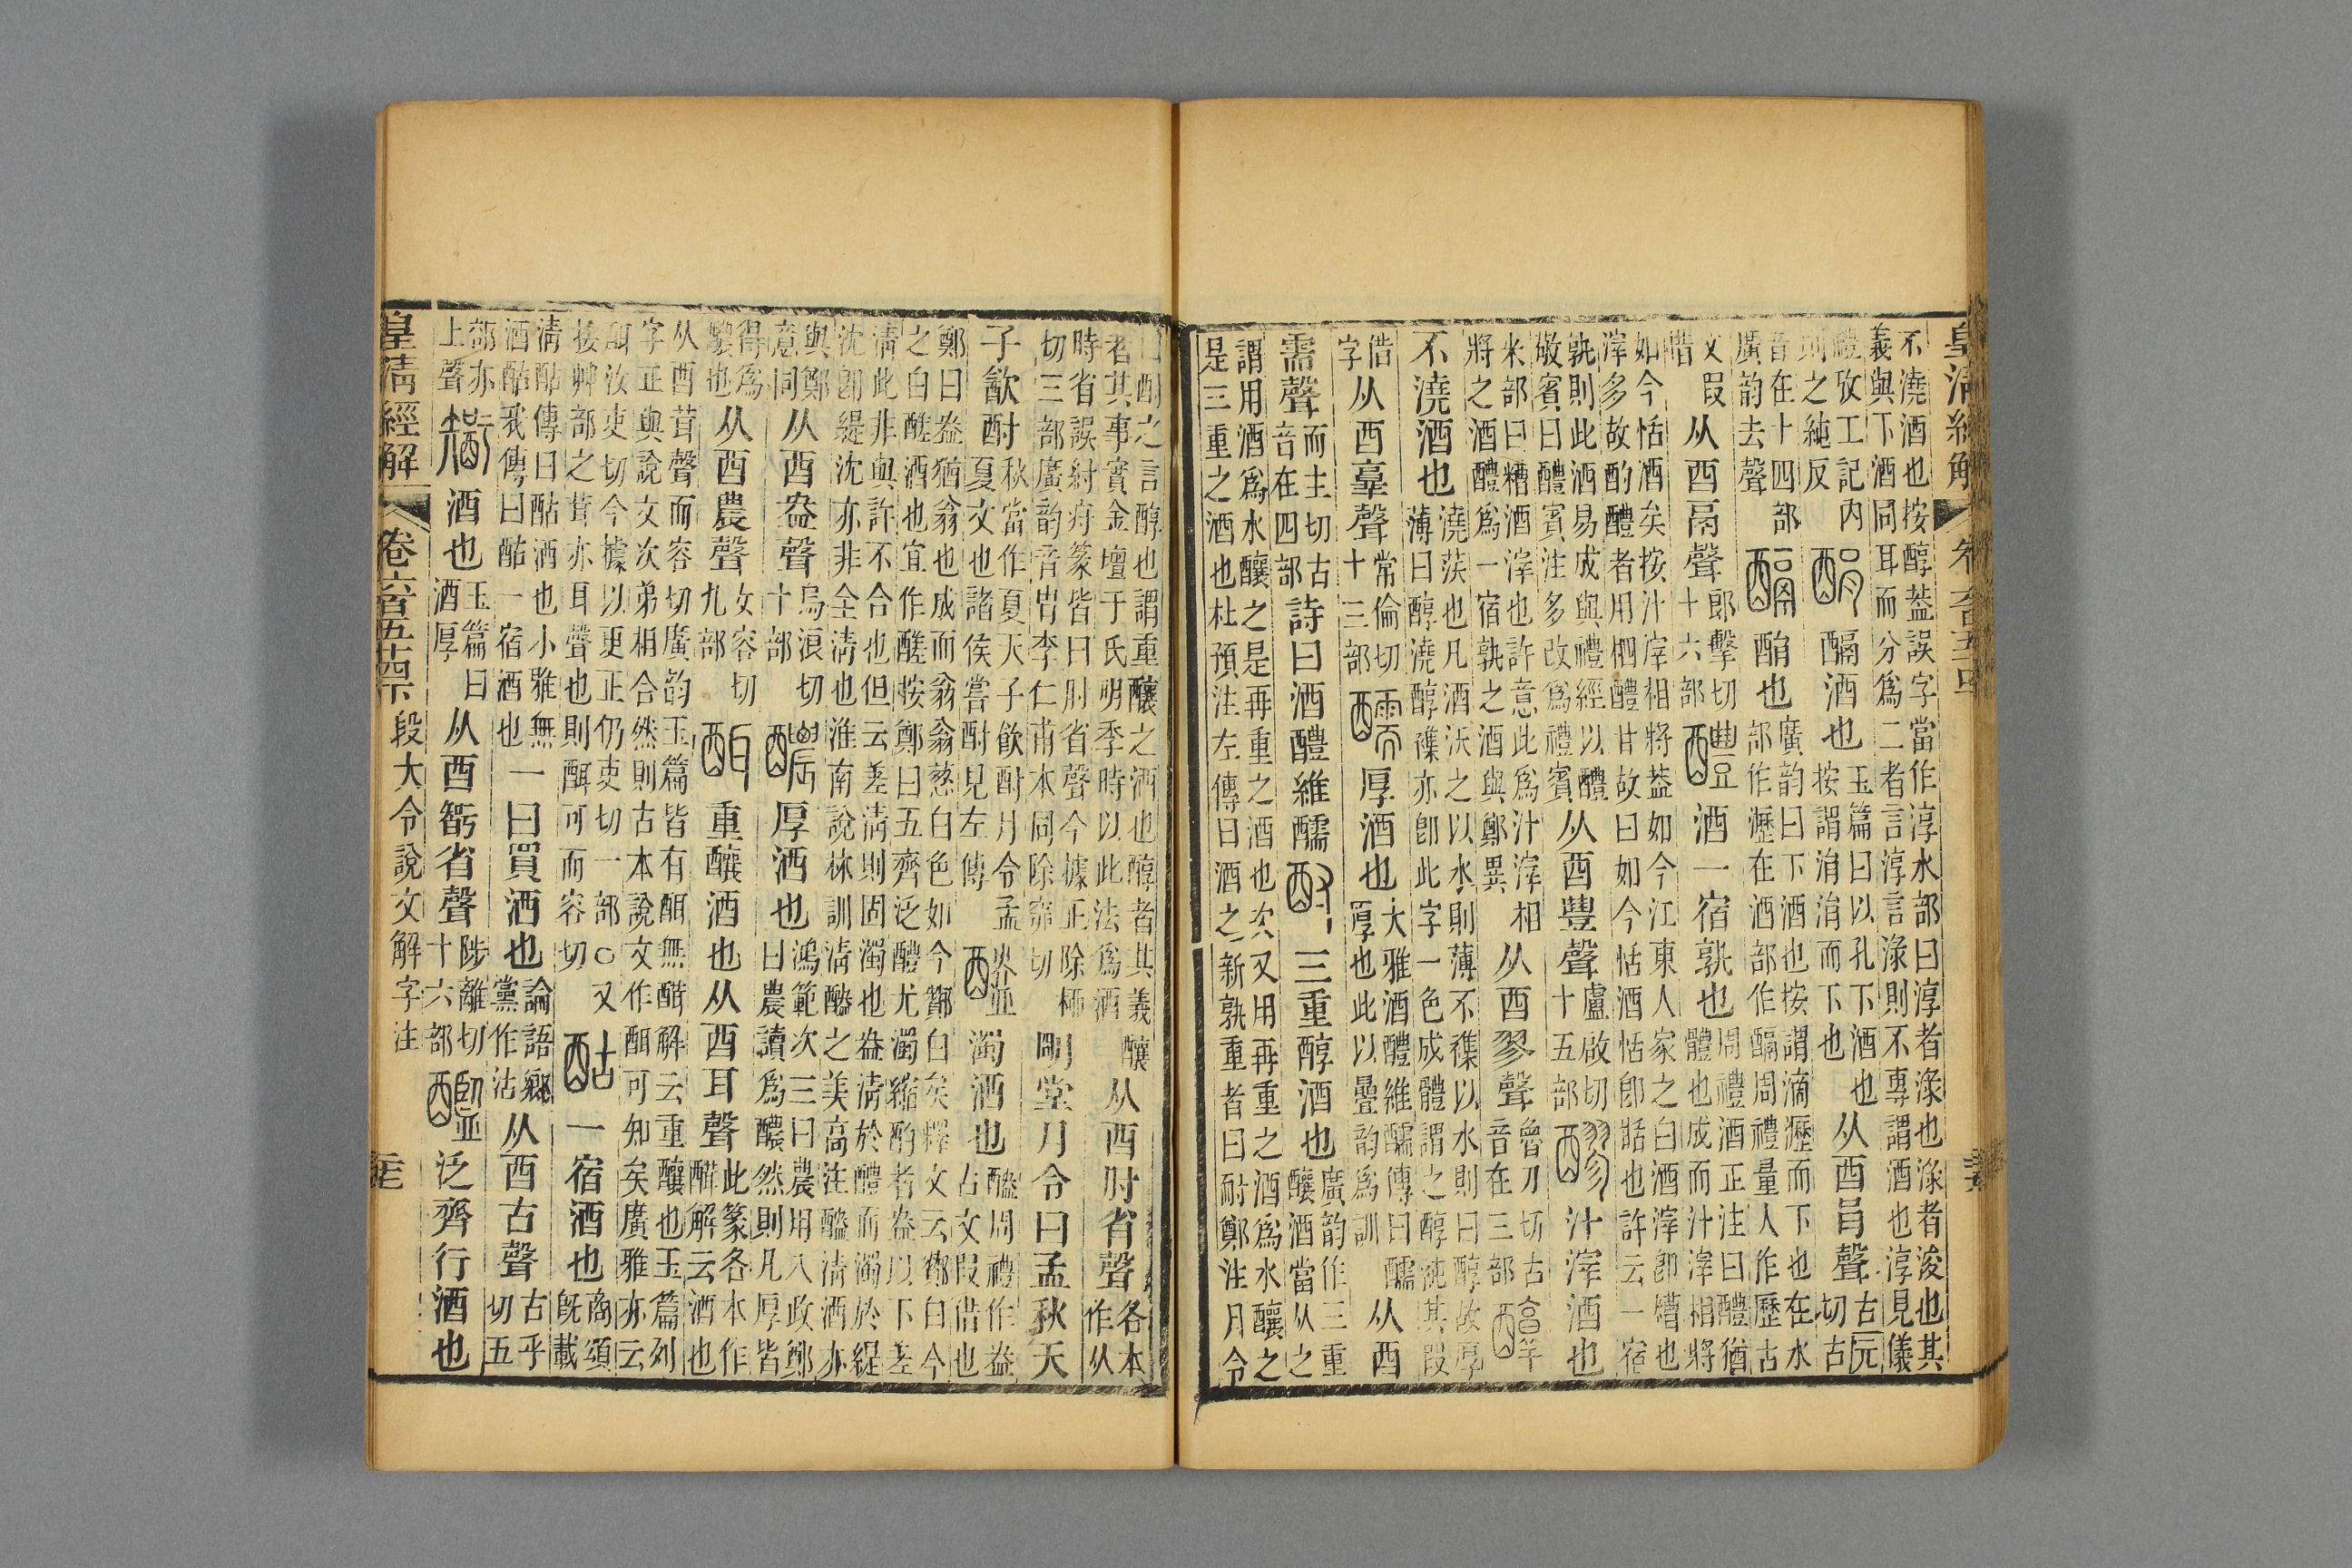 皇清經解 卷六百五十四
不澆酒也按醇葢誤字當作淳水部曰淳者淥也淥者浚也其
義與下酒同耳而分爲二者言淳言淥則不專謂酒也淳見儀
禮攷工記內
則之純反 醑酒也 玉篇曰以孔下酒也
按謂涓涓而下也 从酉肙聲 古元切古
音在十四部
廣韵去聲 酳也 廣韵曰下酒也按謂滴瀝而下也在水
部作瀝在酒部作䤙周禮量人作歷古
文叚
借 从酉鬲聲 郎擊切
十六部 醴 酒一宿孰也 周禮酒正注曰醴猶
體也成而汁滓相將
如今恬酒矣按汁滓相將葢如今江東人家之白酒滓卽糟也
滓多故酌醴者用柶醴甘故曰如今恬酒恬卽甛也許云一宿
孰則此酒易成與禮經以醴
敬賓曰醴賓注多改爲禮賓 从酉豊聲 盧啟切
十五部 醪 汁滓酒也
米部曰糟酒滓也許意此爲汁滓相
將之酒醴爲一宿孰之酒與鄭異 从酉翏聲 魯刀切古
音在三部 醇
不澆酒也 澆㳄也凡酒沃之以水則薄不襍以水則曰醇故厚
薄曰醇澆醇襍亦卽此字一色成體謂之醇純其叚
借
字 从酉𦎫聲 常倫切
十三部 醹 厚酒也 大雅酒醴維醹傳曰醹
厚也此以曡韵爲訓 从酉
需聲 而主切古
音在四部 詩曰酒醴維醹 酎 三重醇酒也 廣韵作三重
釀酒當从之
謂用酒爲水釀之是再重之酒也次又用再重之酒爲水釀之
是三重之酒也杜預注左傳曰酒之新孰重者曰耐鄭注月令
曰酎之言醇也謂重釀之酒也醇者其義釀
者其事實金壇于氏明季時以此法爲酒 从酉肘省聲 各本
作从
時省誤紂疛篆皆曰肘省聲今據正除柳
切三部廣韵音冑李仁甫本同除窌切 明堂月令曰孟秋天
子飮酎 秋當作夏天子飮酎月令孟
夏文也諸侯嘗酎見左傳 醠 濁酒也 醠周禮作盎
古文叚借也
鄭曰盎猶翁也成而翁翁葱白色如今酇白矣釋文云酇白今
之白醝酒也宜作醝按鄭曰五齊泛醴尤濁縮酌者盎以下差
淸此非與許不合也但云差淸則固濁也盎淸於醴而濁於緹
沈卽緹沈亦非全淸也淮南說林訓淸醠之美高注醠淸酒亦
與鄭
意同 从酉盎聲 烏浪切
十部 醲 厚酒也 鴻範次三曰農用八政鄭
曰農讀爲醲然則凡厚皆
得爲
醲也 从酉農聲 女容切
九部 酭 重釀酒也 从酉耳聲 此篆各本作
醋解云酒也
从酉茸聲而容切廣韵玉篇皆有酭無醋解云重釀也玉篇列
字正與說文次弟相合然則古本說文作酭可知矣廣雅亦云
酭汝吏切今據以更正仍吏切一部○又
按艸部之茸亦耳聲也則酭可而容切 酤 一宿酒也 商頌
旣載
淸酤傳曰酤酒也小雅無
酒酤我傳曰酤一宿酒也 一曰買酒也 論語鄉
黨作沽 从酉古聲 古乎
切五
部亦
上聲 酒也 玉篇曰
酒厚 从酉𥏼省聲 陟離切
十六部 醧 泛齊行酒也
皇清經解 卷六百五十四下 段大令說文解字注